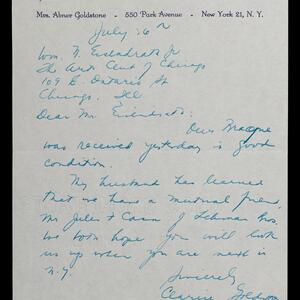 Mrs. Abner Goldstone - 550 Park Avenue - New York 21, N. Y.
July 6
Wm. N. Eisendrath Jr
The Arts Cent of Chicago
109 E. Ontario St
Chicago, Ill
Dear Mr. Eisendrath:
Our
was received yesterday in good
condition.
My husband has learned
that we have a mutual friend,
Mr Jules of Lehman Bros.
We both hope you will look
us up when you are next in
N.Y.
Sincerely
Clarice